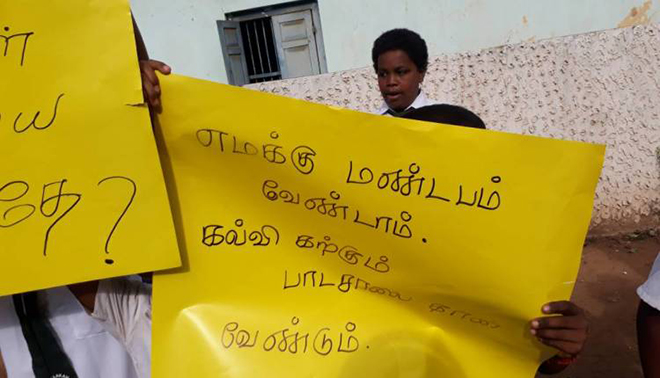 தே?
எமக்கு மண்டபம்
வேண்டாம்.
கல்வி கற்கும்
பாடசாலை தான்
வேண்டும்.